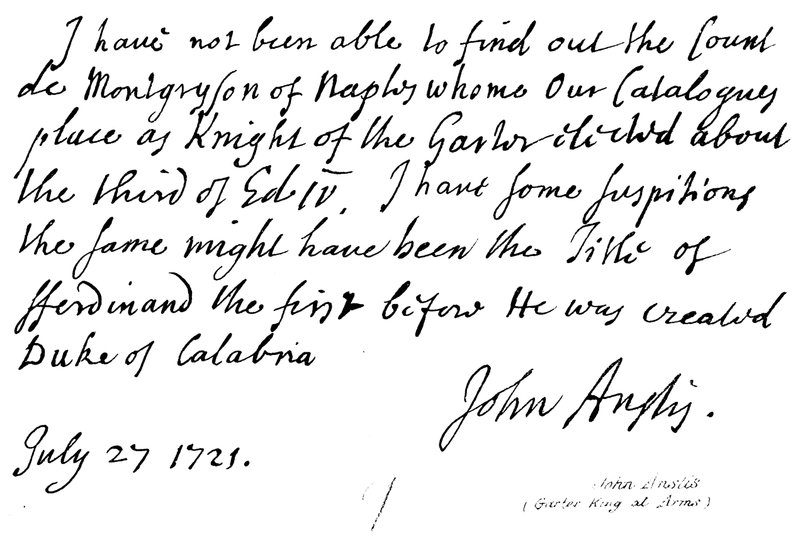 I have not been able to find out the Count
de Montgryson of Naples whome Our Catalogues
place as Knight of the Garter elected about
the third of Ed IV. I have some suspitions
the same might have been the Title of
fferdinand the first before He was created
Duke of Calabria
John Anstis.
July 27 1721.
John Anstis
(Garter King at Arms)